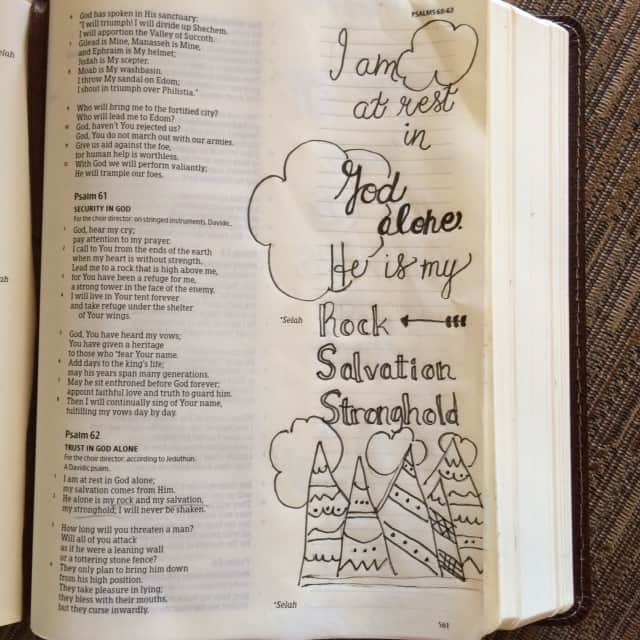 PSALMS 60-62
6 God has spoken in His sanctuary:
"I will triumph! I will divide up Shechem.
I will apportion the Valley of Succoth.
7 Gilead is Mine, Manasseh is Mine,
and Ephraim is My helmet;
Judah is My scepter.
8 Moab is My washbasin.
I throw My sandal on Edom;
I shout in triumph over Philistia."
9 Who will bring me to the fortified city?
Who will lead me to Edom?
10 God, haven't You rejected us?
God, You do not march out with our armies.
11 Give us aid against the foe,
for human help is worthless.
12 With God we will perform valiantly;
He will trample our foes.
Psalm 61
SECURITY IN GOD
For the choir director: on stringed instruments. Davidic.
1 God, hear my cry;
pay attention to my prayer.
2 I call to You from the ends of the earth
when my heart is without strength.
Lead me to a rock that is high above me,
3 for You have been a refuge for me,
a strong tower in the face of the enemy.
4 I will live in Your tent forever
and take refuge under the shelter
of Your wings.
*Selah
5 God, You have heard my vows;
You have given a heritage
to those who *fear Your name.
6 Add days to the king's life;
may his years span many generations.
7 May he sit enthroned before God forever;
appoint faithful love and truth to guard him.
8 Then I will continually sing of Your name,
fulfilling my vows day by day.
Psalm 62
TRUST IN GOD ALONE
For the choir director: according to Jeduthun.
A Davidic psalm.
1 I am at rest in God alone;
my salvation comes from Him.
2 He alone is my rock and my salvation,
my stronghold; I will never be shaken.
3 How long will you threaten a man?
Will all of you attack
as if he were a leaning wall
or a tottering stone fence?
4 They only plan to bring him down
from his high position.
They take pleasure in lying;
they bless with their mouths,
but they curse inwardly.
*Selah
I am
at rest
in
God
alone.
He is my
Rock
Salvation
Stronghold
561